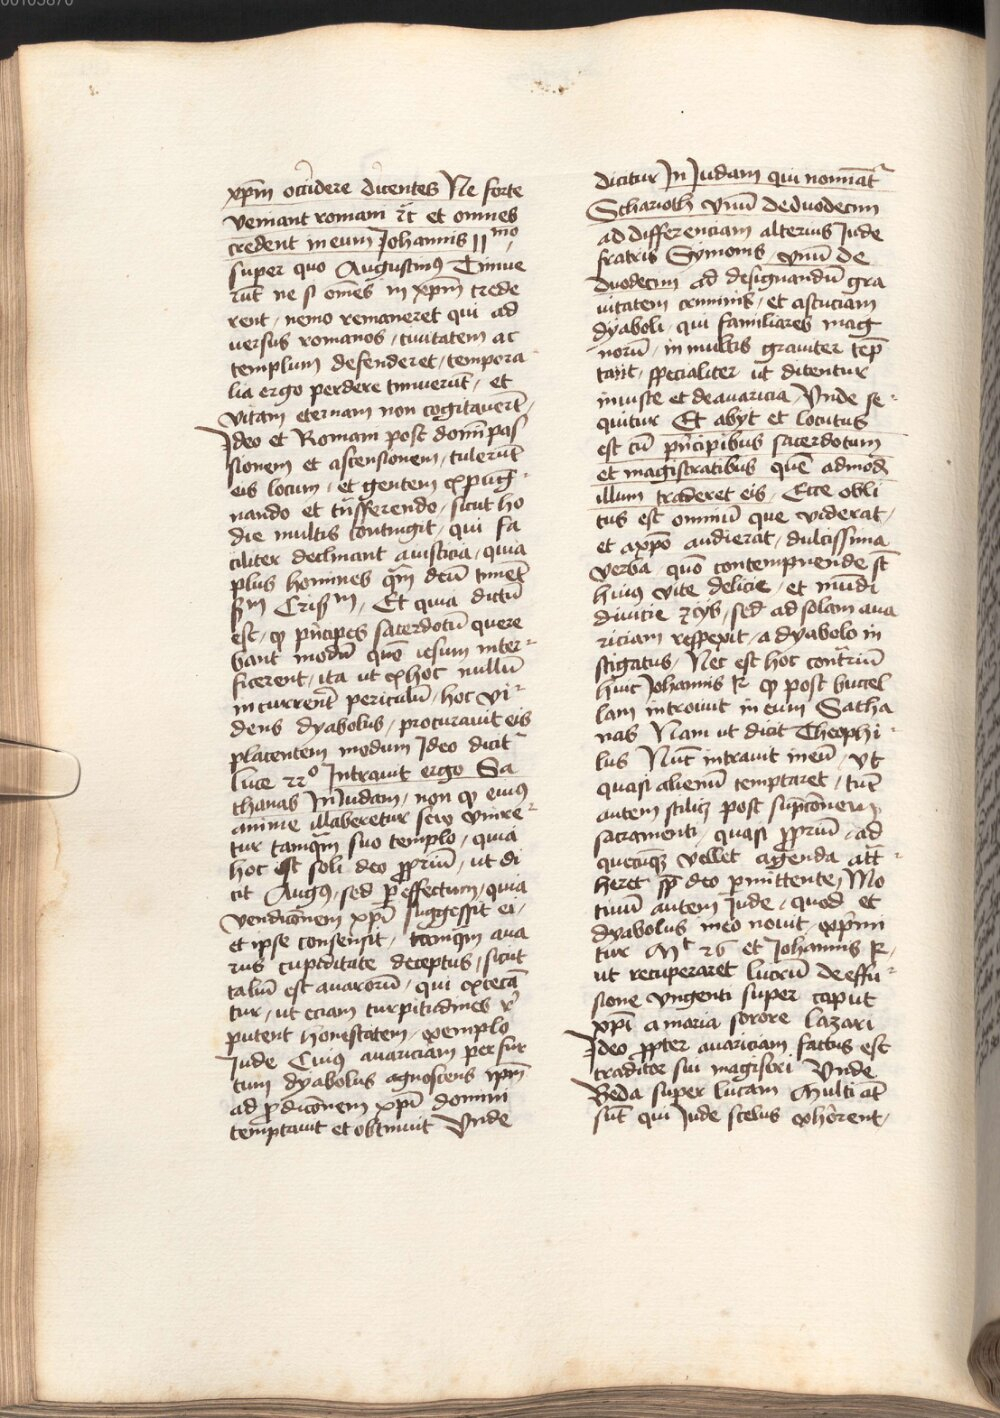 00105870
xp̄m occidere dicentes Ne forte
veniant romani ⁊c̄ et omnes
credent in eum Johannis 11mo
super quo Augustinꝰ Timue
rūt ne si om̄es in xp̄m crede
rent / nemo remaneret qui ad
uersus romanos / ciuitatem ac
templum defenderet / tempora
lia ergo perdere timuerūt / et
vitam eternam non cogitauerūt /
Ideo et Romani post dom̄ pas
sionem et ascensionem / tulerūt
eis locum / et gentem expug
nando et trāsferendo / sicut ho
die multis contingit / qui fa
ciliter declinant a iusticia / quia
plus homines qm̄ deū timēt
Et quia dictū
est / ꝙ prīcipes sacerdotū quere
bant modū quō iesum inter
ficerent / ita ut ex hoc nullū
incurrerēt periculū / hoc vi
dens dyabolus / procurauit eis
placentem modum Ideo dicit̉
luce 22º Intrauit ergo Sa
thanas In Iudam / non ꝙ eiuꝰ
anime illaberetur seu vnire
tur tamqm̄ suo templo / quia
hoc est soli deo ꝓpriū / ut di
cit Augꝰ / sed ꝑ effectum / quia
vendicōnem xp̄i suggessit ei /
et ipse consensit / tamqm̄ aua
rus cupiditate deceptus / sicut
taliū est auarorū / qui excecā
tur / ut eciam turpitudines re
putent honestatem / exemplo
Iude Cuiꝰ auariciam per fur
tum dyabolus agnoscens ip̄m
ad ꝓdicōnem xp̄i domini
temptauit et obtinuit Vnde
dicitur In Iudam qui nomīat̉
Scharioth vnū de duodecim
ad differenciam alterius Iude
fratris Symonis / vnū de
duodecim ad designandū gra
uitatem criminis / et astuciam
dyaboli / qui familiares mag
norū / in multis grauiter tēp
tant / specialiter ut ditentur
iniuste et de auaricia / Vnde se
quitur Et abijt et locutus
est cū prīcipibus sacerdotum
et magistratibus quē admod̄
illum traderet eis / Ecce obli
tus est omniū que viderat /
et a xp̄o audierat / dulcissima
verba / quō contempnende st̄
huiꝰ vite delicie / et mūdi
diuicie / sed ad solam aua
riciam respexit / a dyabolo in
stigatus / Nec est hoc contrariū
huic Johannis ꝙ post buccel
lam introiuit in eum Satha
nas Nam ut dicit Theophi
lus Nūc intrauit in eū / vt
quasi alienū temptaret / tūc
autem scilicꝫ post
sacramenti / quasi ꝓpriū / ad
quecūqꝫ vellet agenda att̄
heret sp̄ deo ꝑmittente / Mo
tiuū autem Iude / quod et
dyabolus in eo nouit / exp̄mi
tur Mt 26 et Johannis
ut recuperaret lucrū de effu
sione vngenti super caput
xp̄i a maria sorore lazari
Ideo ꝓpter auariciam factus est
traditor sui magistri Vnde
Beda super lucam Multi at̄
sūt qui Iude scelus exhorrent /